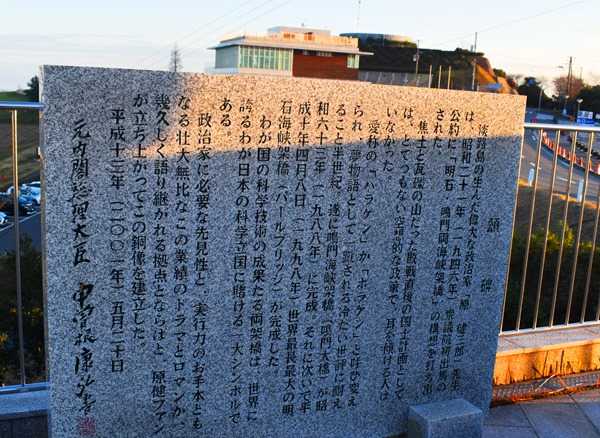 顕碑
淡路島の生んだ偉大な政治家 原 健三郎 先生
は、昭和二十一年(一九四六年)衆議院初出馬の
公約に「明石 鳴門両海峡架橋」の構想を打ち出
された。
焦土と瓦礫の山だった敗戦直後の国土計画として
は、とてつもない空想的な政策で、耳を傾ける人は
いなかった。
愛称の「ハラケン」が「ホラケン」とはやし変え
られ、夢物語として一蹴される冷たい世評に耐え
ること半世紀、遂に鳴門海峡架橋(鳴門大橋)が昭
和六十三年(一九八八年)に完成、それに次いで平
成十年四月八日(一九九八年)世界最長最大の明
石海峡架橋(パールブリッジ)が完成した
わが国の科学技術の成果たる両架橋は、世界に
誇るわが日本の科学立国に賭ける一大シンボルで
ある。
政治家に必要な先見性と、実行力のお手本とも
なる壮大無比なこの業績のドラマとロマンが、
幾久しく語り継がれる拠点とならばと、原健ファン
が立ち上がってこの銅像を建立した。
平成十三年(二〇〇一年)五月二十日
元内閣総理大臣 中曽根康弘書